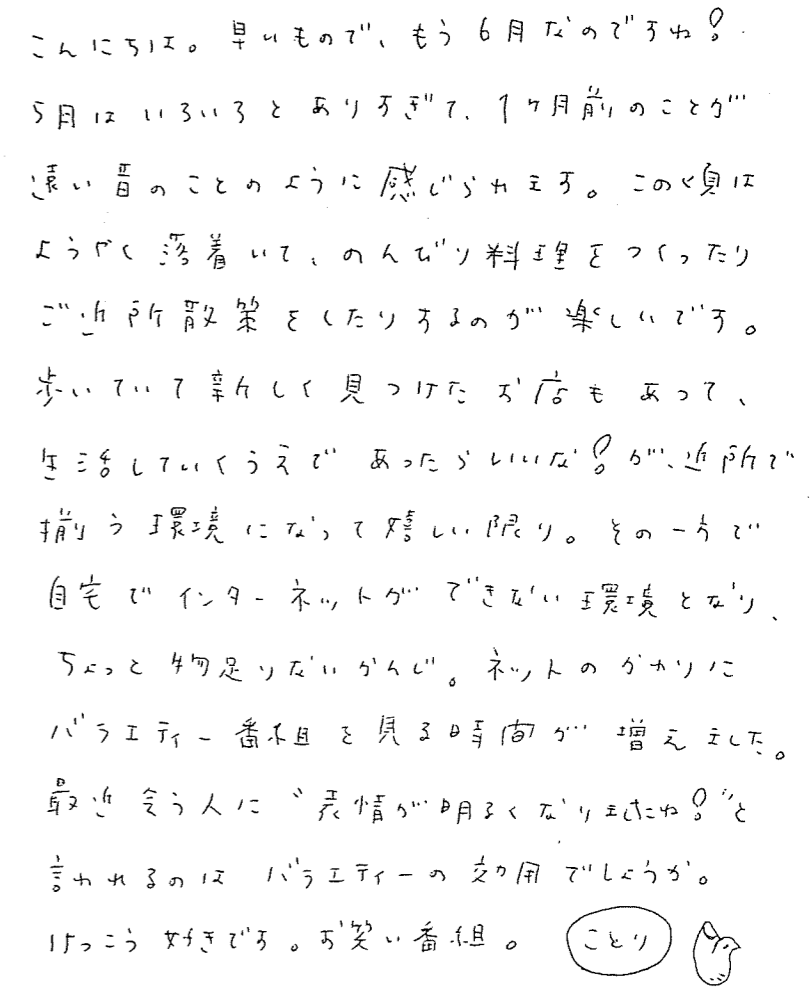 こんにちは。早いもので、もう6月なのですね!
5月はいろいろとありすぎて、1ヶ月前のことが
遠い昔のことのように感じられます。この頃は
ようやく落着いて、のんびり料理をつくったり
ご近所散策をしたりするのが楽しいです。
歩いていて新しく見つけたお店もあって、
生活していくうえであったらいいな!が、近所で
揃う環境になって嬉しい限り。その一方で
自宅でインターネットができない環境となり、
ちょっと物足りないかんじ。ネットのかわりに
バラエティー番組を見る時間が増えました。
最近会う人に“表情が明るくなりましたね!”と
言われるのはバラエティーの効用でしょうか。
けっこう好きです。お笑い番組。 ことり